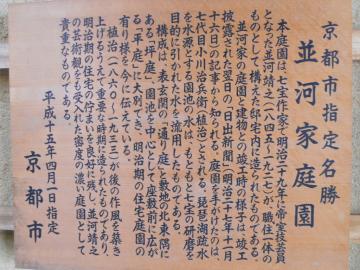 京都市指定名勝
並河家庭園
本庭園は、七宝作家で明治二十九年に帝室技芸員
となった並河靖之(一八四五〜一九二七)が、職住一体の
ものとして、構えた邸宅内に造られたものである。
並河家の庭園と建物との竣工時の様子は、竣工
披露された翌日の「日出新聞」(明治二十七年十一月
十六日)の記事から知られる。作庭を手がけたのは、
七代目小川治兵衛(植治)とされる。琵琶湖疏水
を水源とする園池の水は、もともと七宝の研磨を
目的に引かれた水を流用したものである。
構成は、表玄関の「通り庭」と敷地の北東隅に
ある「坪庭」、園池を中心として座敷前に広が
る「平庭」に大別でき、明治期の住宅庭園の
有り様を今に伝えている。
植治(一八六〇〜一九三三)が後の作風を築き
上げるうえで重要な時期に造られたものであり、
明治期の住宅の佇まいを良好に残し、並河靖之
の芸術観をも受入れた密度の濃い庭園として
貴重なものである。
平成十五年四月一日指定
京都市